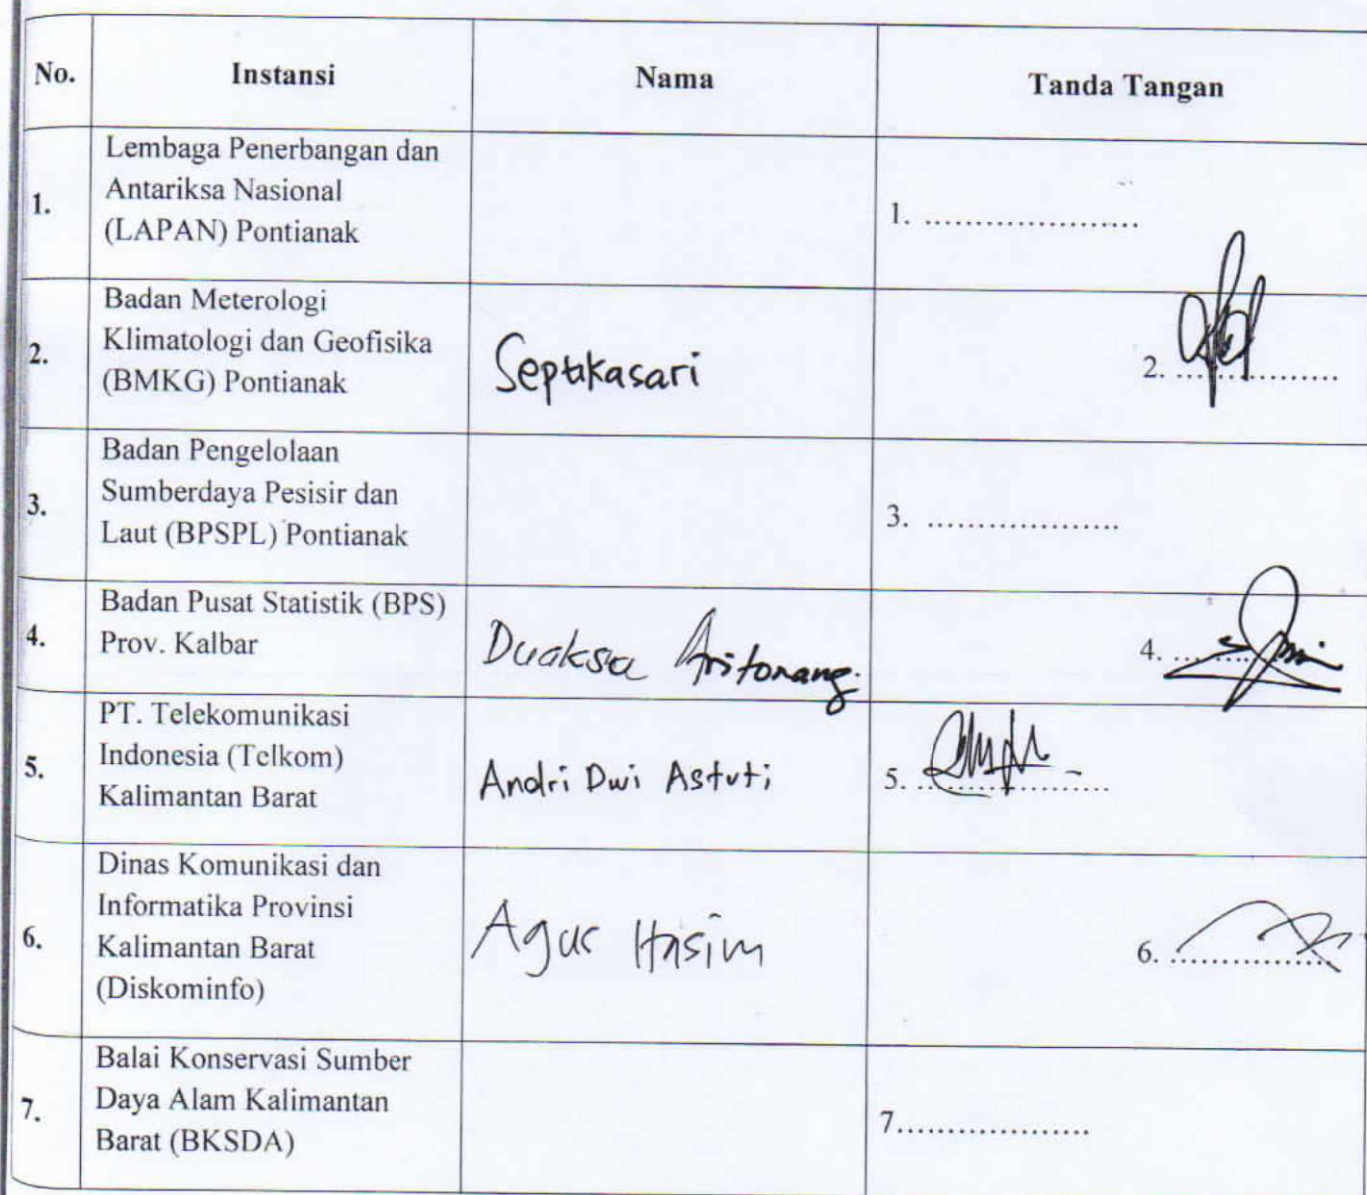 No. Instansi Nama Tanda Tangan
Lembaga Penerbangan dan
Antariksa Nasional
(LAPAN) Pontianak
1.
1. ....................
Badan Meterologi
Klimatologi dan Geofisika
(BMKG) Pontianak
2.
Septikasari
2. ...............
Badan Pengelolaan
Sumberdaya Pesisir dan
Laut (BPSPL) Pontianak
3.
3. ..................
Badan Pusat Statistik (BPS)
Prov. Kalbar
4.
Duaksa Aritonang.
4. ........
PT. Telekomunikasi
Indonesia (Telkom)
Kalimantan Barat
5.
Andri Dwi Astuti
5. ..................
Dinas Komunikasi dan
Informatika Provinsi
Kalimantan Barat
(Diskominfo)
6.
Agus Hasim
6. ................
Balai Konservasi Sumber
Daya Alam Kalimantan
Barat (BKSDA)
7.
7..................